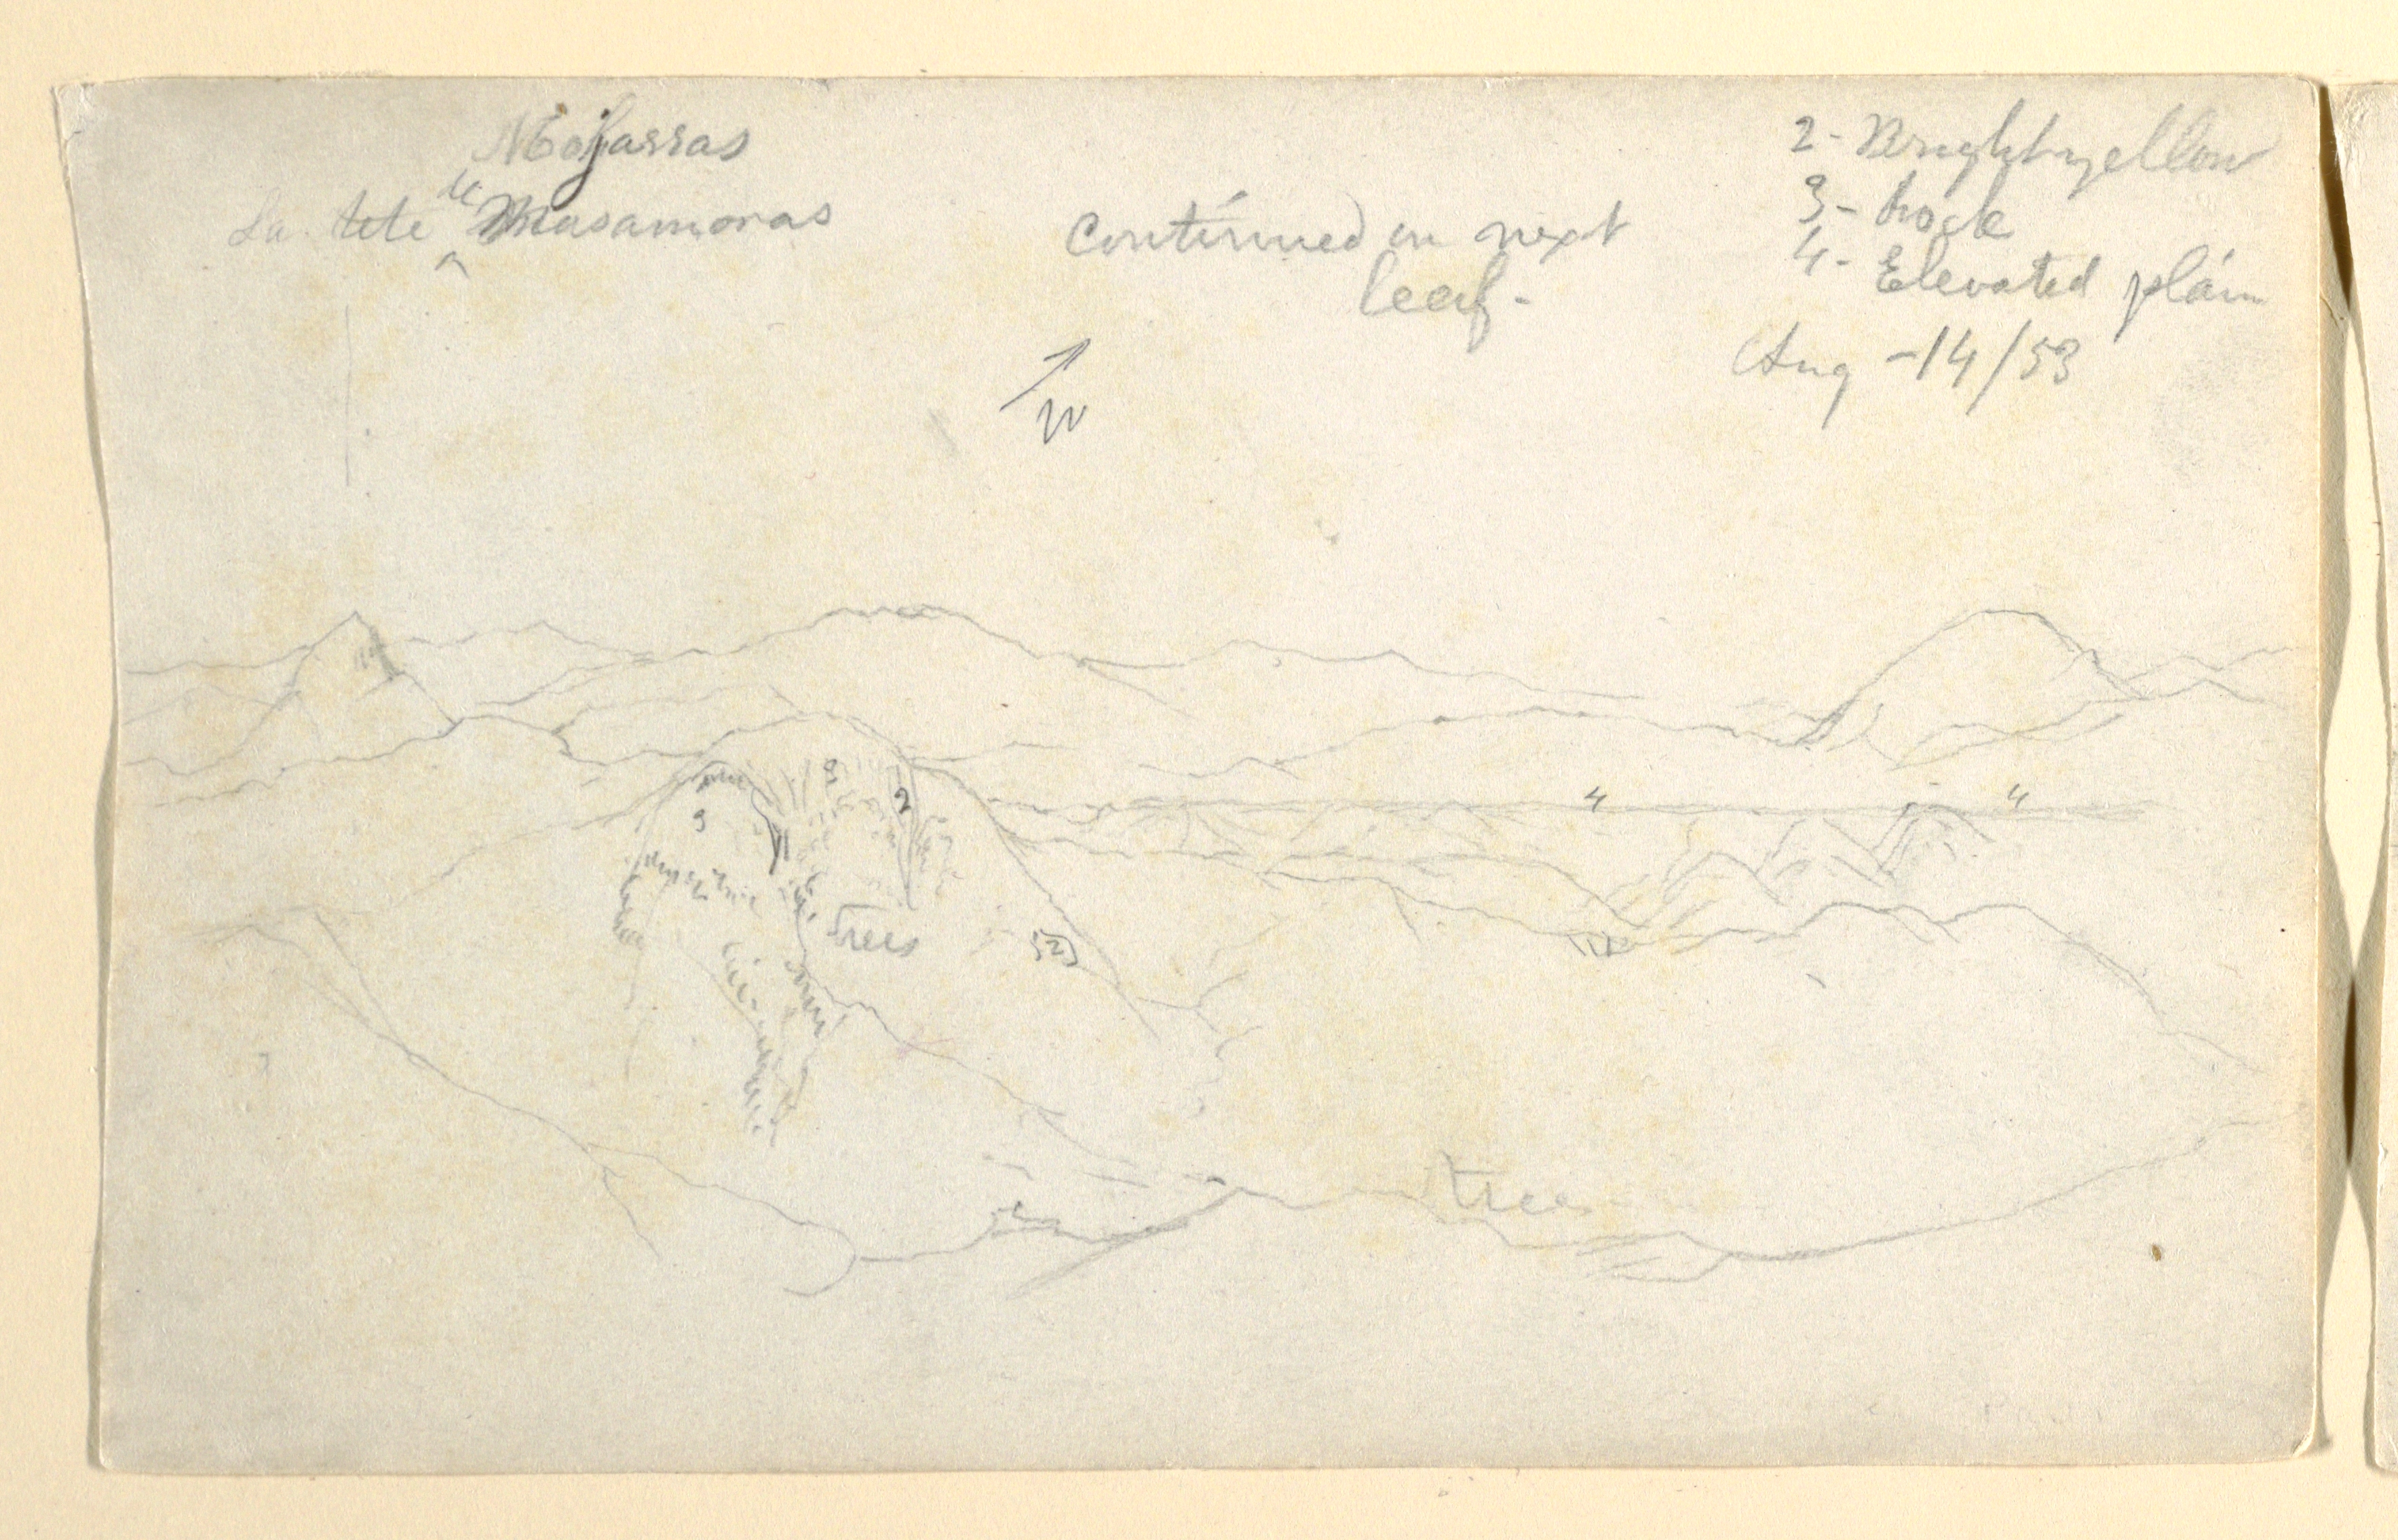 Mojarras
La tete de Masamoras
Continued on next
leaf-
2- Bright yellow
3- Rock
4- Elevated plain
Aug -14/53
W
3
2
3
4
4
trees
2
trees